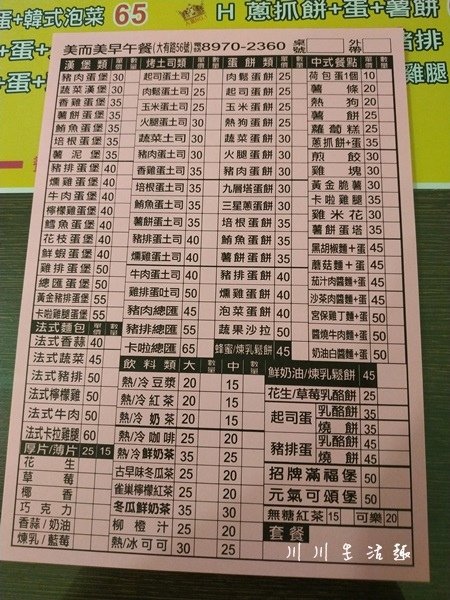 蛋+韓式泡菜 65
H 蔥抓餅+蛋+薯餅
美而美早午餐(大有路56號)8970-2360 桌號 外帶
漢堡類 單價 數量
豬肉蛋堡 30
蔬菜漢堡 30
香雞蛋堡 35
薯餅蛋堡 35
鮪魚蛋堡 35
培根蛋堡 35
薯泥堡 35
豬排蛋堡 40
燻雞蛋堡 40
牛肉蛋堡 40
檸檬雞蛋堡 40
鱈魚蛋堡 40
花枝蛋堡 40
鮮蝦蛋堡 40
雞排蛋堡 50
總匯蛋堡 50
黃金豬排蛋堡 55
卡啦雞腿蛋堡 55
法式麵包 單價 數量
法式香蒜 40
法式蔬菜 45
法式豬排 50
法式檸檬雞 50
法式牛肉 50
法式卡拉雞腿 60
厚片/薄片 25 15
花生
草莓
椰香
巧克力
香蒜/奶油
煉乳/藍莓
烤土司類 單價 數量
起司蛋土司 25
肉鬆蛋土司 25
玉米蛋土司 25
火腿蛋土司 30
蔬菜土司 30
豬肉蛋土司 30
香雞蛋土司 35
培根蛋土司 35
鮪魚蛋土司 35
薯餅蛋土司 35
豬排蛋土司 40
燻雞蛋土司 40
牛肉蛋土司 40
雞排蛋吐司 50
豬肉總匯 45
豬排總匯 55
卡啦總匯 65
蛋餅類 單價 數量
肉鬆蛋餅 25
起司蛋餅 25
玉米蛋餅 25
熱狗蛋餅 25
蔬菜蛋餅 30
火腿蛋餅 30
豬肉蛋餅 30
九層塔蛋餅 30
三星蔥蛋餅 30
培根蛋餅 35
鮪魚蛋餅 35
薯餅蛋餅 35
豬排蛋餅 40
燻雞蛋餅 40
泡菜蛋餅 40
蔬果沙拉 50
蜂蜜/煉乳鬆餅 45
飲料類 大 數量 中 數量
熱/冷豆漿 20 15
熱/冷紅茶 20 15
熱/冷奶茶 20 15
熱/冷咖啡 25 20
熱/冷鮮奶茶 35 25
古早味冬瓜茶 25 20
雀巢檸檬紅茶 25 20
冬瓜鮮奶茶 35 25
柳橙汁 25 20
熱/冰可可 30 25
中式餐點 單價 數量
荷包蛋1個 10
薯條 20
熱狗 20
薯餅 20
蘿蔔糕 25
蔥抓餅+蛋 35
煎餃 30
雞塊 30
黃金脆薯 30
卡啦雞腿 35
雞米花 30
薯餅蛋塔 35
黑胡椒麵+蛋 45
蘑菇麵+蛋 45
茄汁肉醬麵+蛋 45
沙茶肉醬麵+蛋 45
宮保雞丁麵+蛋 50
醬燒牛肉麵+蛋 50
奶油白醬麵+蛋 50
鮮奶油/煉乳鬆餅 45
花生/草莓乳酪餅 25
起司蛋 乳酪餅 35
燒餅 35
豬排蛋 乳酪餅 45
燒餅 45
招牌滿福堡 50
元氣可頌堡 50
無糖紅茶 15 可樂 20
套餐
川川生活趣